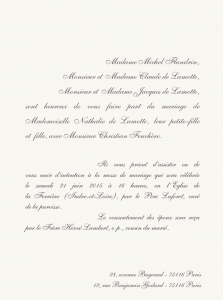 Madame Michel Flandrin,
Monsieur et Madame Claude de Lamotte,
Monsieur et Madame Jacques de Lamotte,
sont heureux de vous faire part du mariage de
Mademoiselle Nathalie de Lamotte, leur petite-fille
et fille, avec Monsieur Christian Fouchère.
Ils vous prient d'assister ou de
vous unir d'intention à la messe de mariage qui sera célébrée
le samedi 21 juin 2015 à 16 heures, en l'Église de
la Ferrière (Indre-et-Loire), par le Père Lafort, curé
de la paroisse.
Le consentement des époux sera reçu
par le Frère Hervé Lambert, o.p., cousin du marié.
24, avenue Bugeaud - 75116 Paris
19, rue Benjamin Godard - 75116 Paris